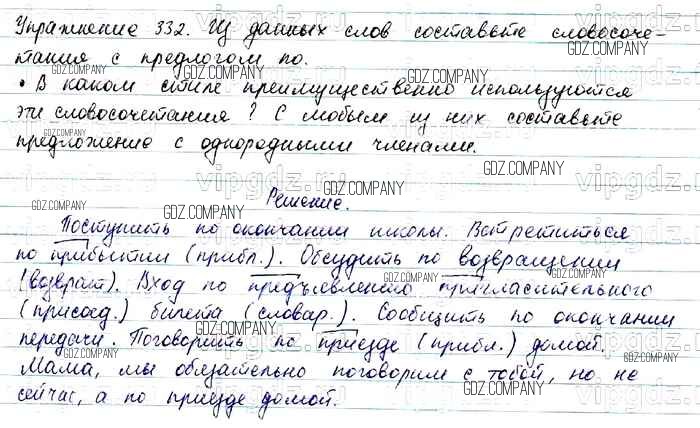 Упражнение 332. Из данных слов составьте словосоче-
тания с предлогом по.
• В каком стиле преимущественно используются
эти словосочетания? С любым из них составьте
предложение с однородными членами.
Решение.
Поступить по окончании школы. Встретиться
по прибытии (прибл.). Обсудить по возвращении
(возврат). Вход по предъявлению пригласительного
(присоед.) билета (словар.). Сообщить по окончании
передачи. Поговорить по приезде (прибл.) домой.
Мама, мы обязательно поговорим с тобой, но не
сейчас, а по приезде домой.
GDZ.COMPANY
vipgdz.ru